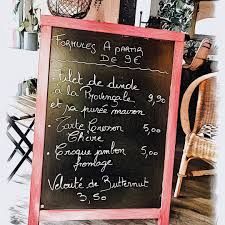 FORMULES A PARTIR
DE 9€
Filet de dinde
à la Provençale 9,90
et sa purée maison
Tarte Cresson 5,00
Chèvre
Croque jambon 5,00
fromage
Velouté de Butternut
3,50